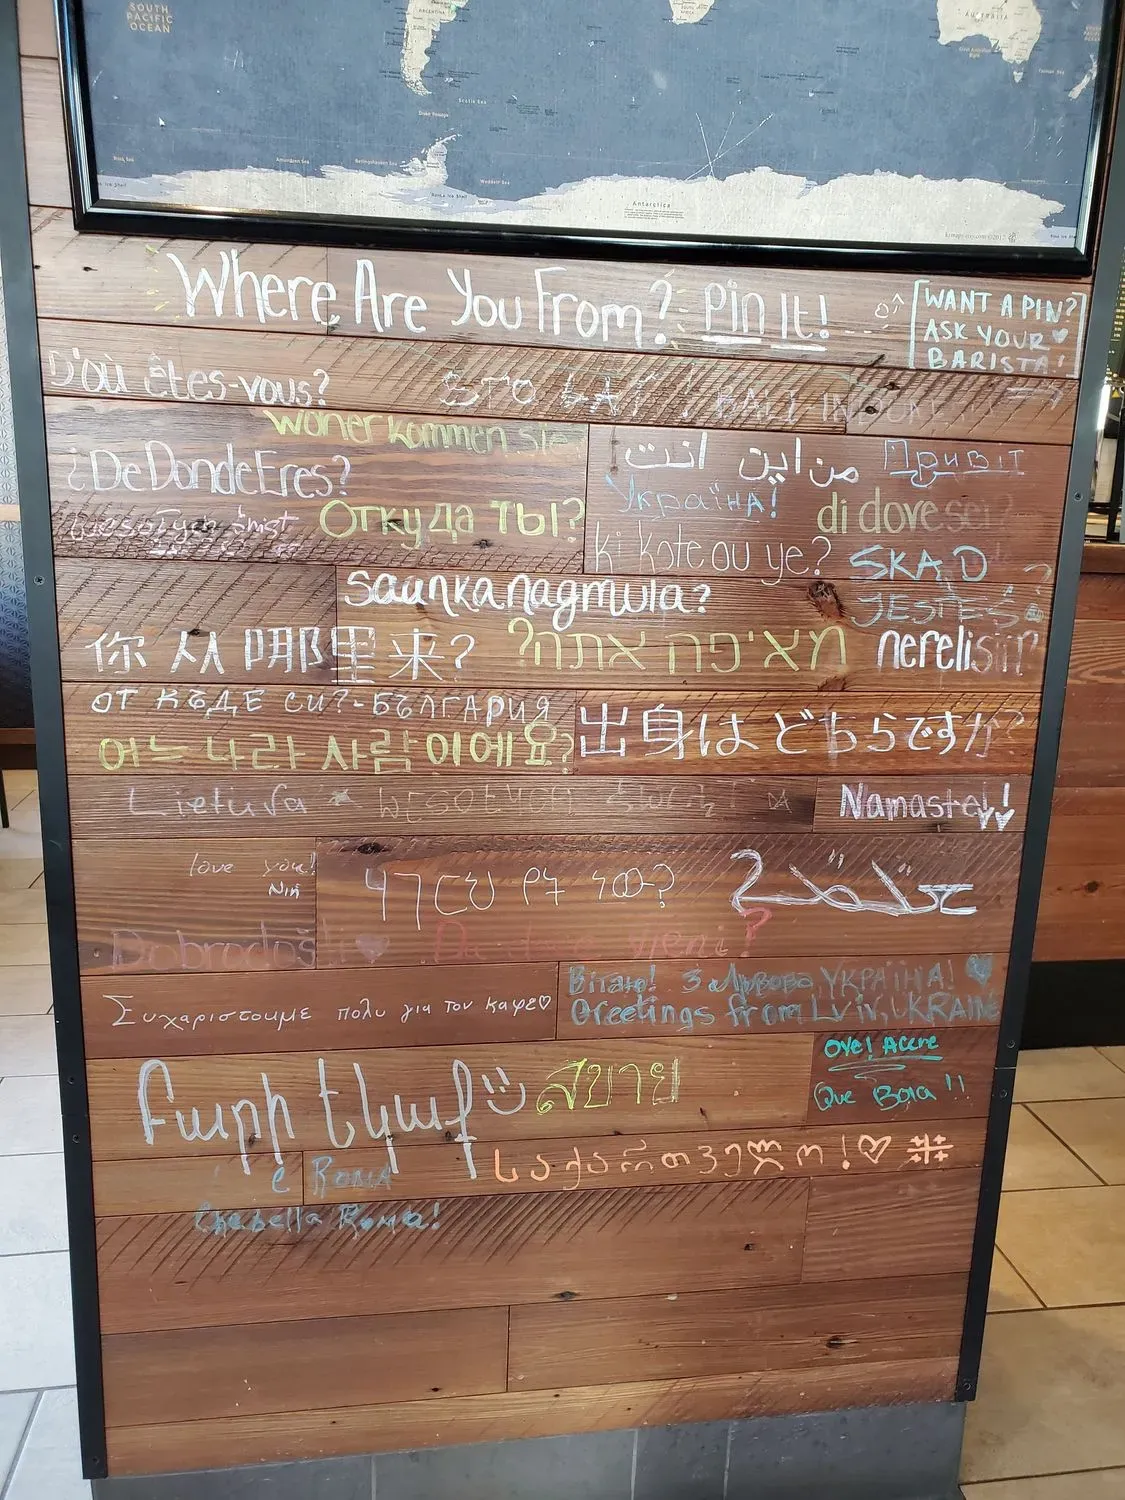 SOUTH PACIFIC OCEAN
ARGENTINA
AUSTRALIA
Scotia Sea
Weddell Sea
Ross Sea
Amundsen Sea
Antarctica
Where Are You From? Pin It!
WANT A PIN?
ASK YOUR
BARISTA!
D'où êtes-vous?
STO LAT!
BALI-INDONE
Woher kommen sie
¿De Donde Eres?
من اين انت
Привіт
Україна!
Откуда ты?
di dove sei?
ki kote ou ye?
SKĄD
JESTEŚ?
saan ka nagmula?
你从哪里来?
מאיפה אתה?
nerelisin?
ОТ КЪДЕ СИ?-БЪЛГАРИЯ
出身はどちらですか?
어느 나라 사람이에요?
Lietuva
Namaste!!
love you!
Dobrodošli Da davo vjeni?
Συχαριστουμε πολυ για τον καφε
Вітаю! З Львова УКРАЇНА!
Greetings from Lviv, UKRAINE
Oye! Acere
Que Bola!!
Բարի եկաք
สบาย
საქართველო!
e Roma
Roma!